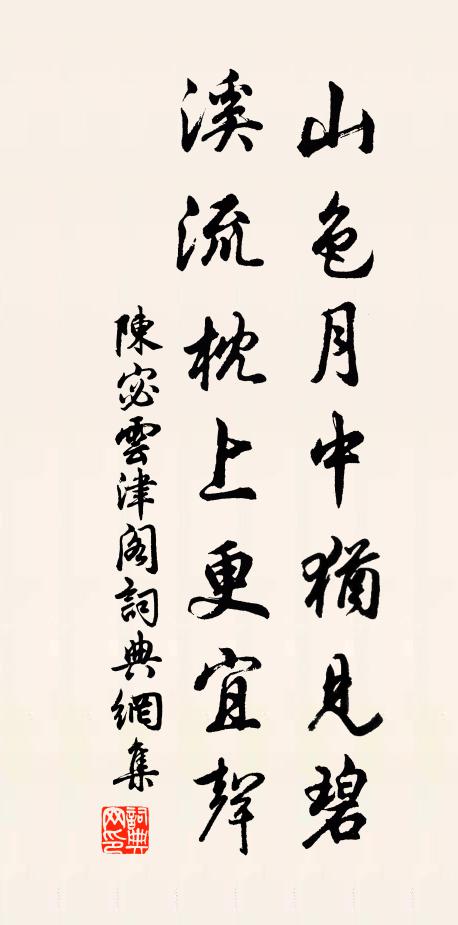 山色月中猶見碧
溪流枕上更宜聲
陳宓雲津阁詞典網集
詞典网印